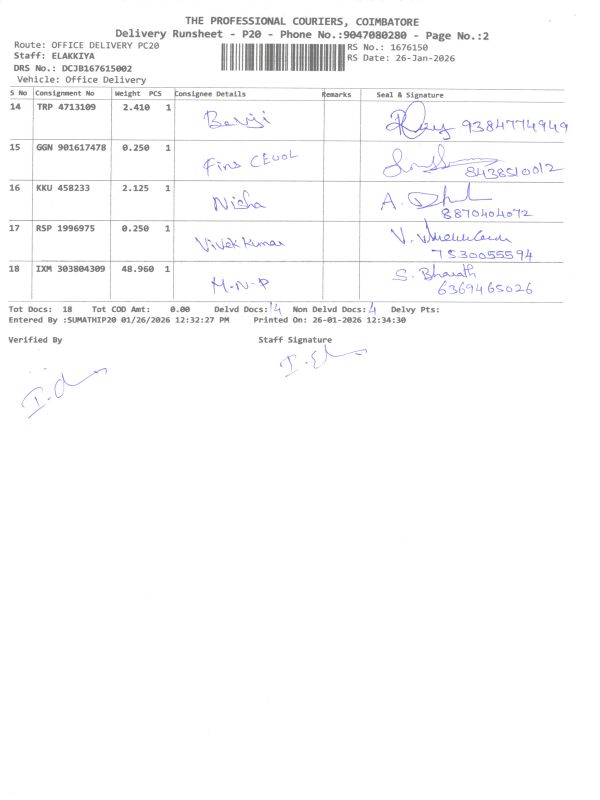 THE PROFESSIONAL COURIERS, COIMBATORE
Delivery Runsheet - P20 - Phone No.:9047080280 - Page No.:2
Route: OFFICE DELIVERY PC20 RS No.: 1676150
Staff: ELAKKIYA RS Date: 26-Jan-2026
DRS No.: DCJB167615002
Vehicle: Office Delivery
S No Consignment No Weight PCS Consignee Details Remarks Seal & Signature
14 TRP 4713109 2.410 1 9384774949
15 GGN 901617478 0.250 1 8438510012
16 KKU 458233 2.125 1 Nisha A.
8870404072
17 RSP 1996975 0.250 1 Vivek Kumar V.
7530055594
18 IXM 303804309 48.960 1 M.N.P S. Bharath
6369465026
Tot Docs: 18 Tot COD Amt: 0.00 Delvd Docs: 14 Non Delvd Docs: 4 Delvy Pts:
Entered By :SUMATHIP20 01/26/2026 12:32:27 PM Printed On: 26-01-2026 12:34:30
Verified By Staff Signature